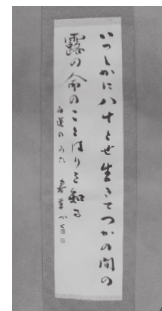 いつしかに八十とせ生きてつかの間の
露の命のことはりを知る
白蓮のうた